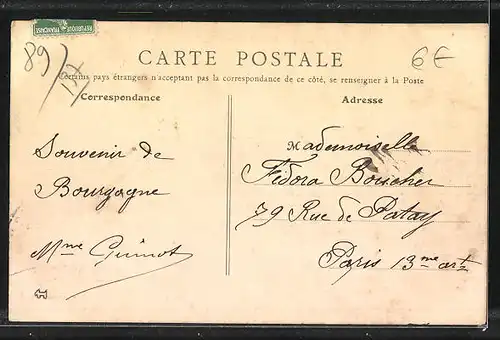 REPUBLIQUE FRANÇAISE
89
CARTE POSTALE
6€
Certains pays étrangers n'acceptant pas la correspondance de ce côté, se renseigner à la Poste
Correspondance
Adresse
Souvenir de
Bourgogne
Mme Guinot
Mademoiselle
Fédora Boucher
79 Rue de Patay
Paris 13me art